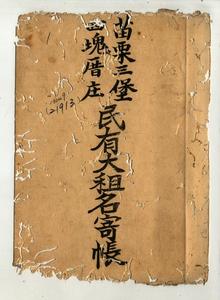 苗栗三堡
塊厝庄
民有大租名寄帳
1913